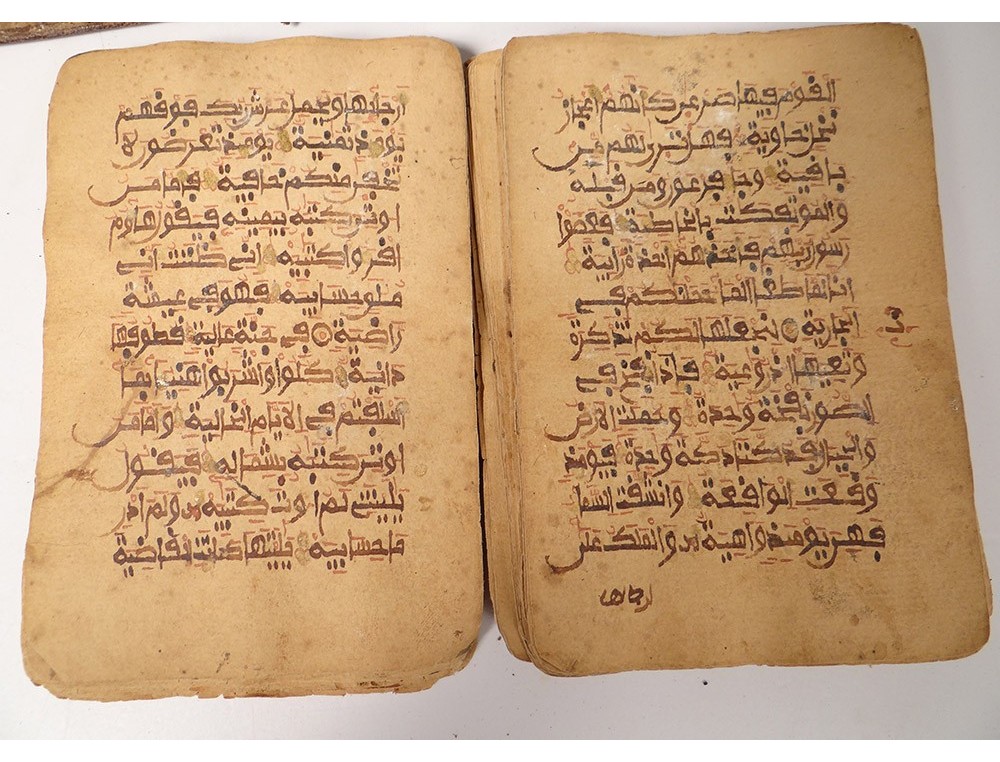 القوم فيها صرعى كأنهم أعجاز
نخل خاوية فهل ترى لهم من
باقية وجا فرعون ومن قبله
والموتفكت بالخاطية فعصوا
رسول ربهم فأخذهم أخذة رابية
انا لما طغا الما حملنكم في
الجارية لنجعلها لكم تذكرة
وتعيها أذن وعية فإذا نفخ في
الصور نفخة وحدة وحملت الارض
والجبال فدكتا دكة وحدة فيومئذ
وقعت الواقعة وانشقت السما
فهى يومئذ واهية والملك على
ارجايها
ارجايها ويحمل عرش ربك فوقهم
يومئذ ثمنية يومئذ تعرضون لا
تخفى منكم خافية فاما من
اوتى كتبه بيمينه فيقول هاوم
اقروا كتبيه انى ظننت انى
ملق حسابيه فهو في عيشة
راضية في جنة عالية قطوفها
دانية كلوا واشربوا هنيا بما
اسلفتم في الايام الخالية واما من
اوتى كتبه بشماله فيقول
يليتنى لم اوت كتبيه ولم ادر
ما حسابيه يليتها كانت القاضية